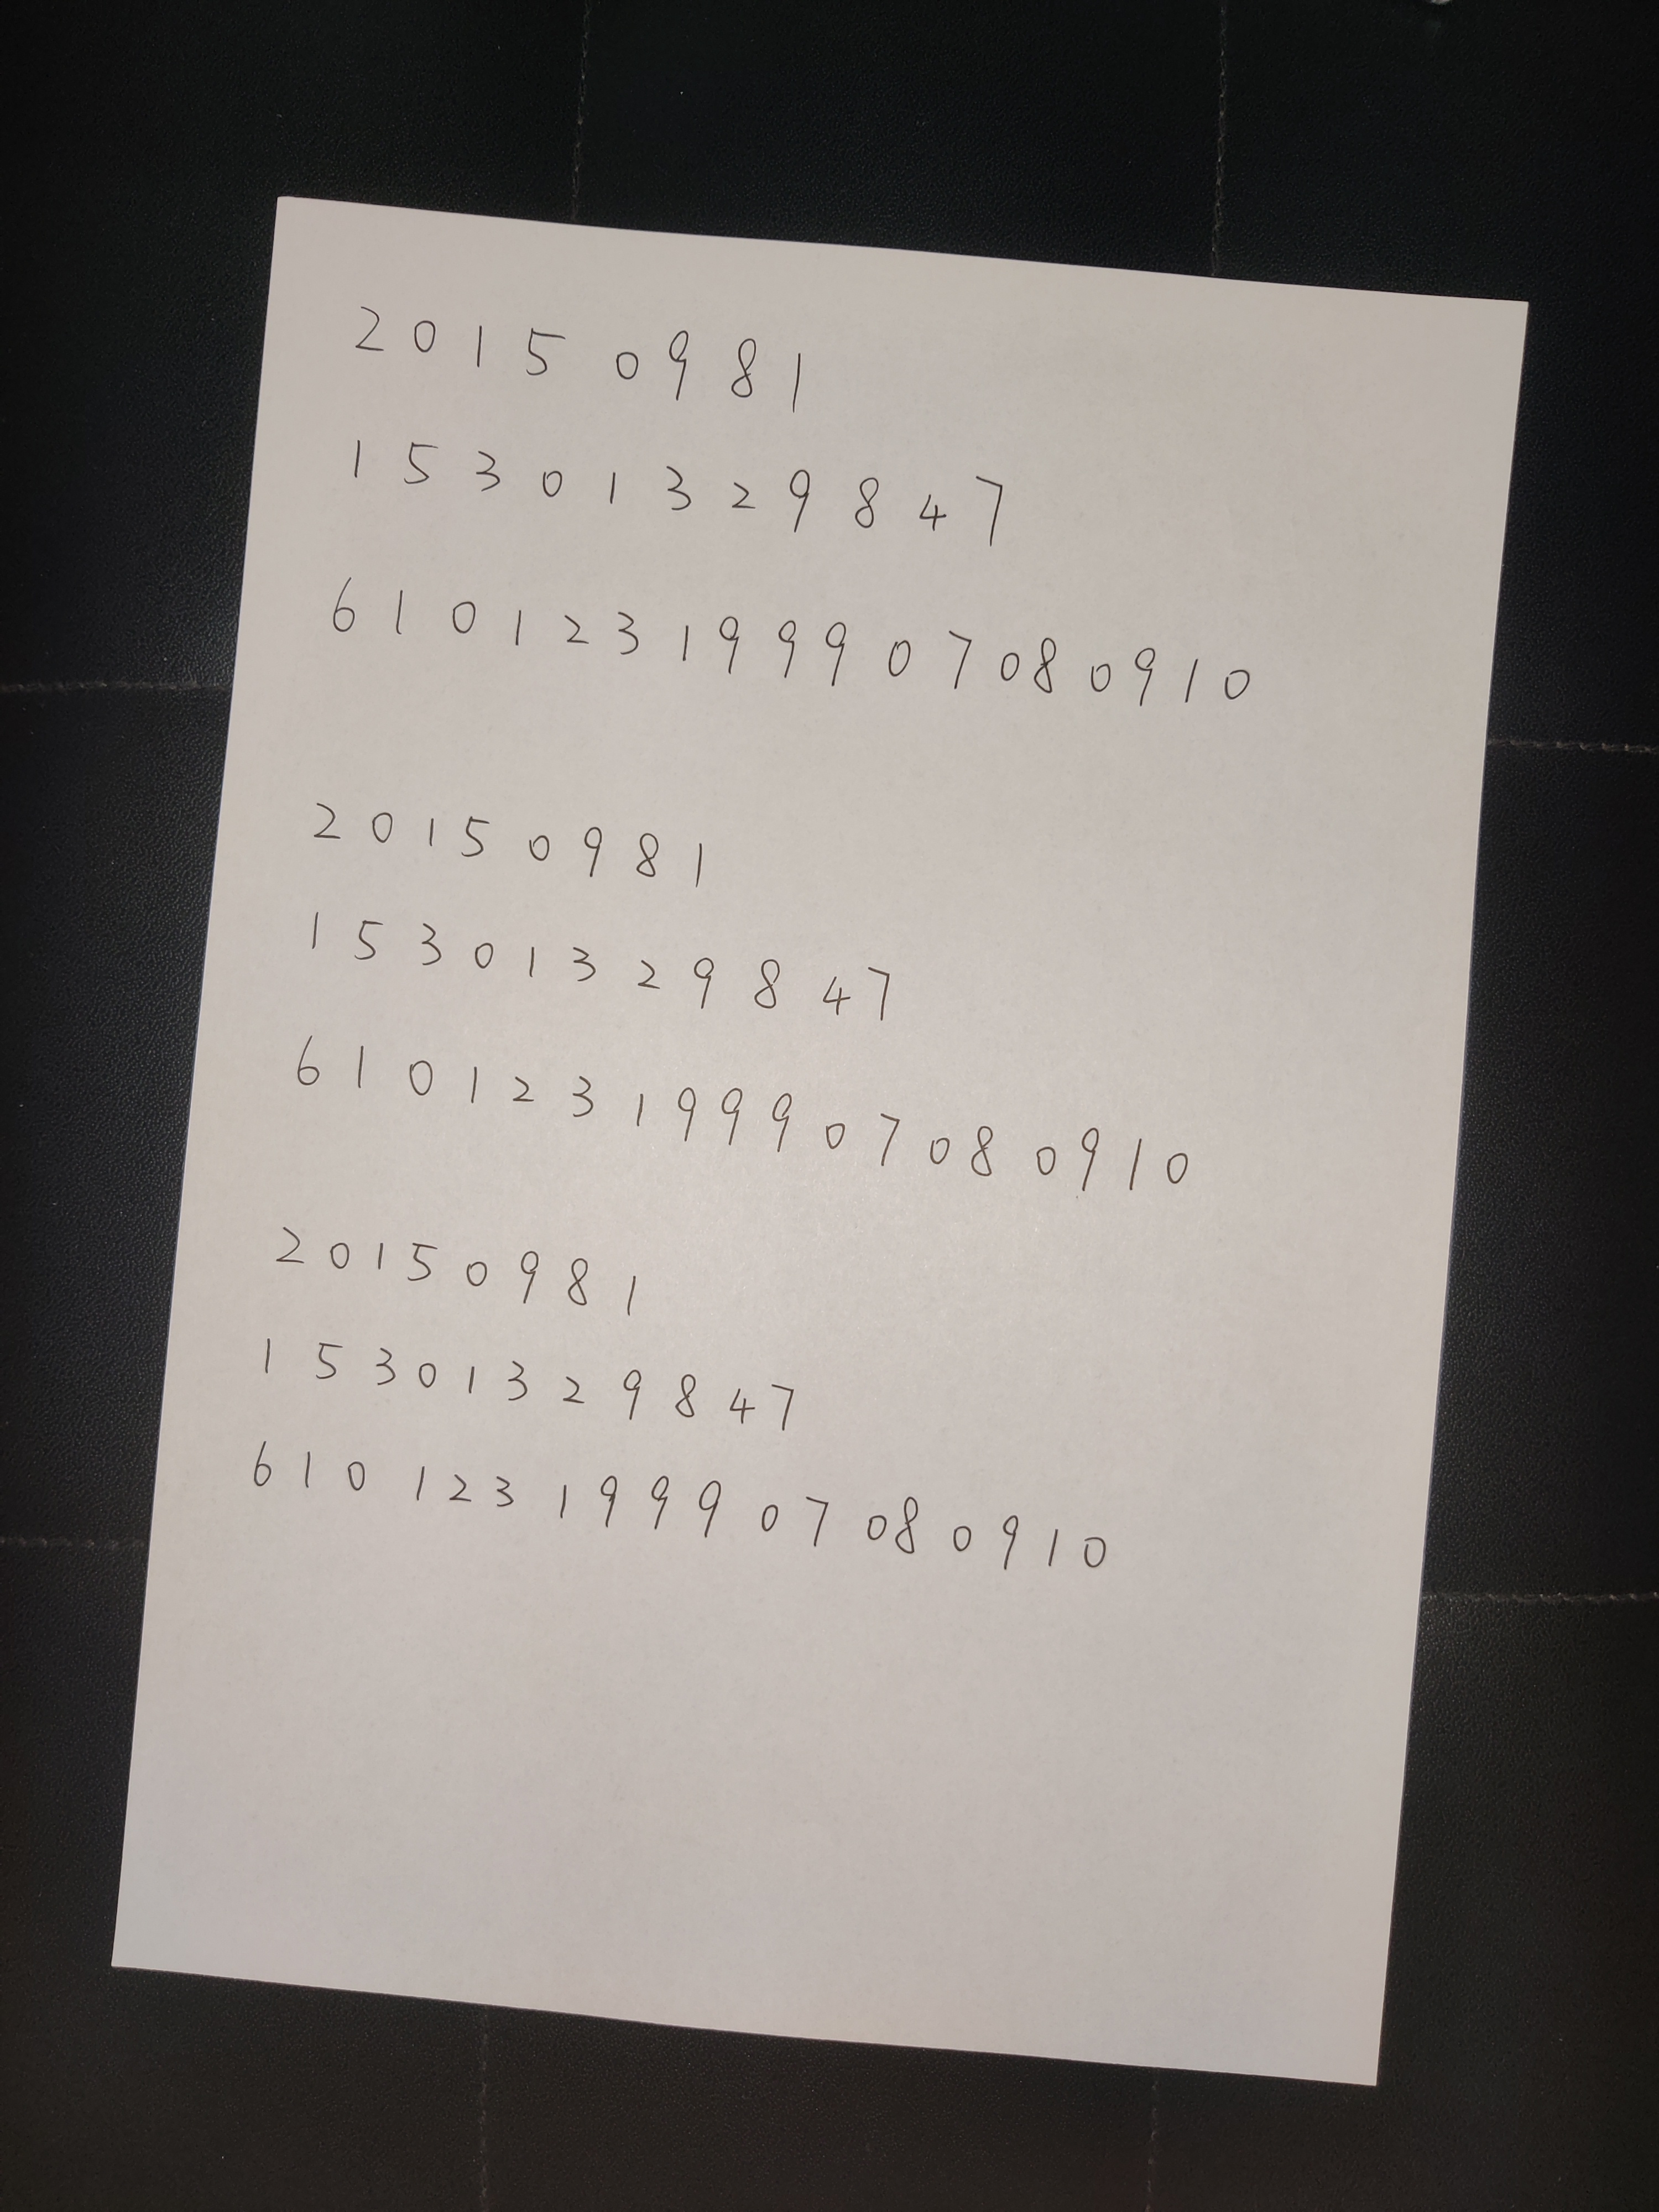 20150981
15301329847
610123199907080910
20150981
15301329847
610123199907080910
20150981
15301329847
610123199907080910